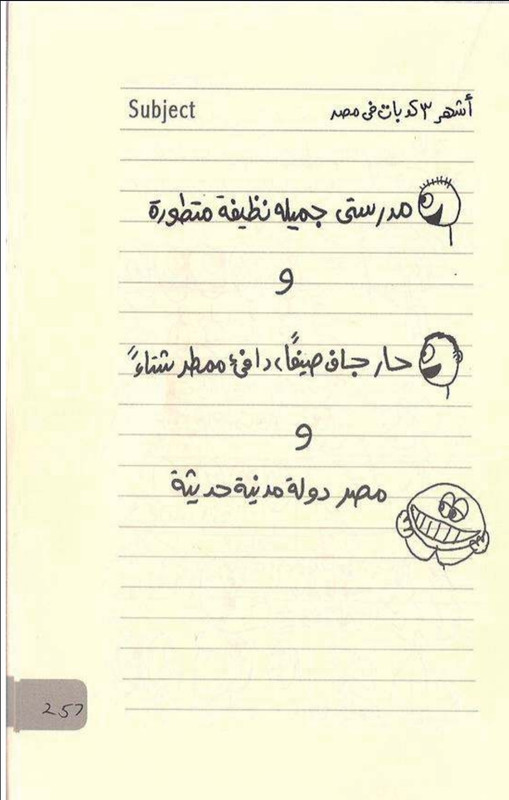 Subject
أشهر ٣ كدبات فى مصر
مدرستى جميله نظيفة متطورة
و
حار جاف صيفًا، دافئ ممطر شتاءً
و
مصر دولة مدنية حديثة
257